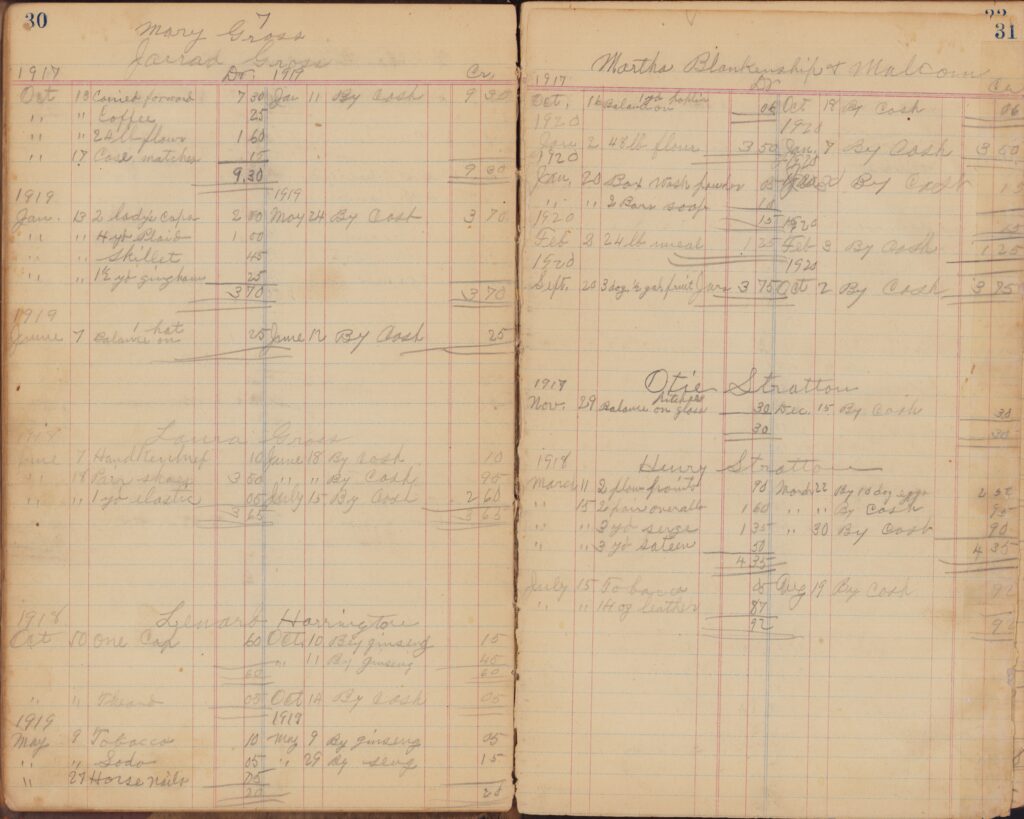 30
Mary Gross 7
Jarrad Gross
1917 Dr. 1919 Cr.
Oct 13 Carried forward 7 30 Jan 11 By Cash 9 30
" " Coffee 25
" " 24 lb flour 1 60
" 17 Case matches 15
9.30 9 30
1919 1919
Jan. 13 2 ladys caps 2 00 May 24 By Cash 3 70
" " 4 yd Plaid 1 00
" " Skillet 45
" " yd gingham 25
3 70 3 70
1919
June 7 Balance on hat 25 June 12 By Cash 25
1918 Laura Gross
June 7 Handkerchief 10 June 18 By Cash 10
" 18 Pair shoes 3 50 " " By Cash 95
" " 1 yd elastic 05 July 15 By Cash 2 60
3 65 3 65
1918 Lenarb Harrington
Oct 10 One Cap 60 Oct. 10 By ginseng 15
" 11 By ginseng 45
60 60
" " Thread 05 Oct 14 By Cash 05
1919 1919
May 9 Tobacco 10 May 9 By ginseng 05
" " Soda 05 " 29 By seng 15
" 29 Horse nails 05
20 20
22
31
Martha Blankenship & Malcomn
1917 Dr Cr
Oct. 16 Balance on 06 Oct 18 By Cash 06
1920 1920
Jan 2 48 lb flour 3 50 Jan. 7 By Cash 3 50
1920 1920
Jan. 20 Box Wash powder 05 By Cash 15
" " 2 Bars soap 10
15 15
1920 1920
Feb 2 24 lb meal 1 25 Feb 3 By Cash 1 25
1920 1920
Sept. 20 3 doz ½ gal fruit Jars 3 75 Oct 2 By Cash 3 75
1917 Otie Stratton
Nov. 29 Balance on pitcher glass 30 Dec. 15 By Cash 30
30 30
1918 Henry Stratton
March 11 2 plow points 90 March 22 By 10 doz eggs 2 50
" 15 2 pair overalls 1 60 " " By Cash 95
" " 3 yd serge 1 35 " 30 By Cash 90
" " 3 yd Sateen 50
4 35 4 35
July 15 Tobacco 05 Aug 19 By Cash 92
" " 14 oz leather 87
92 92